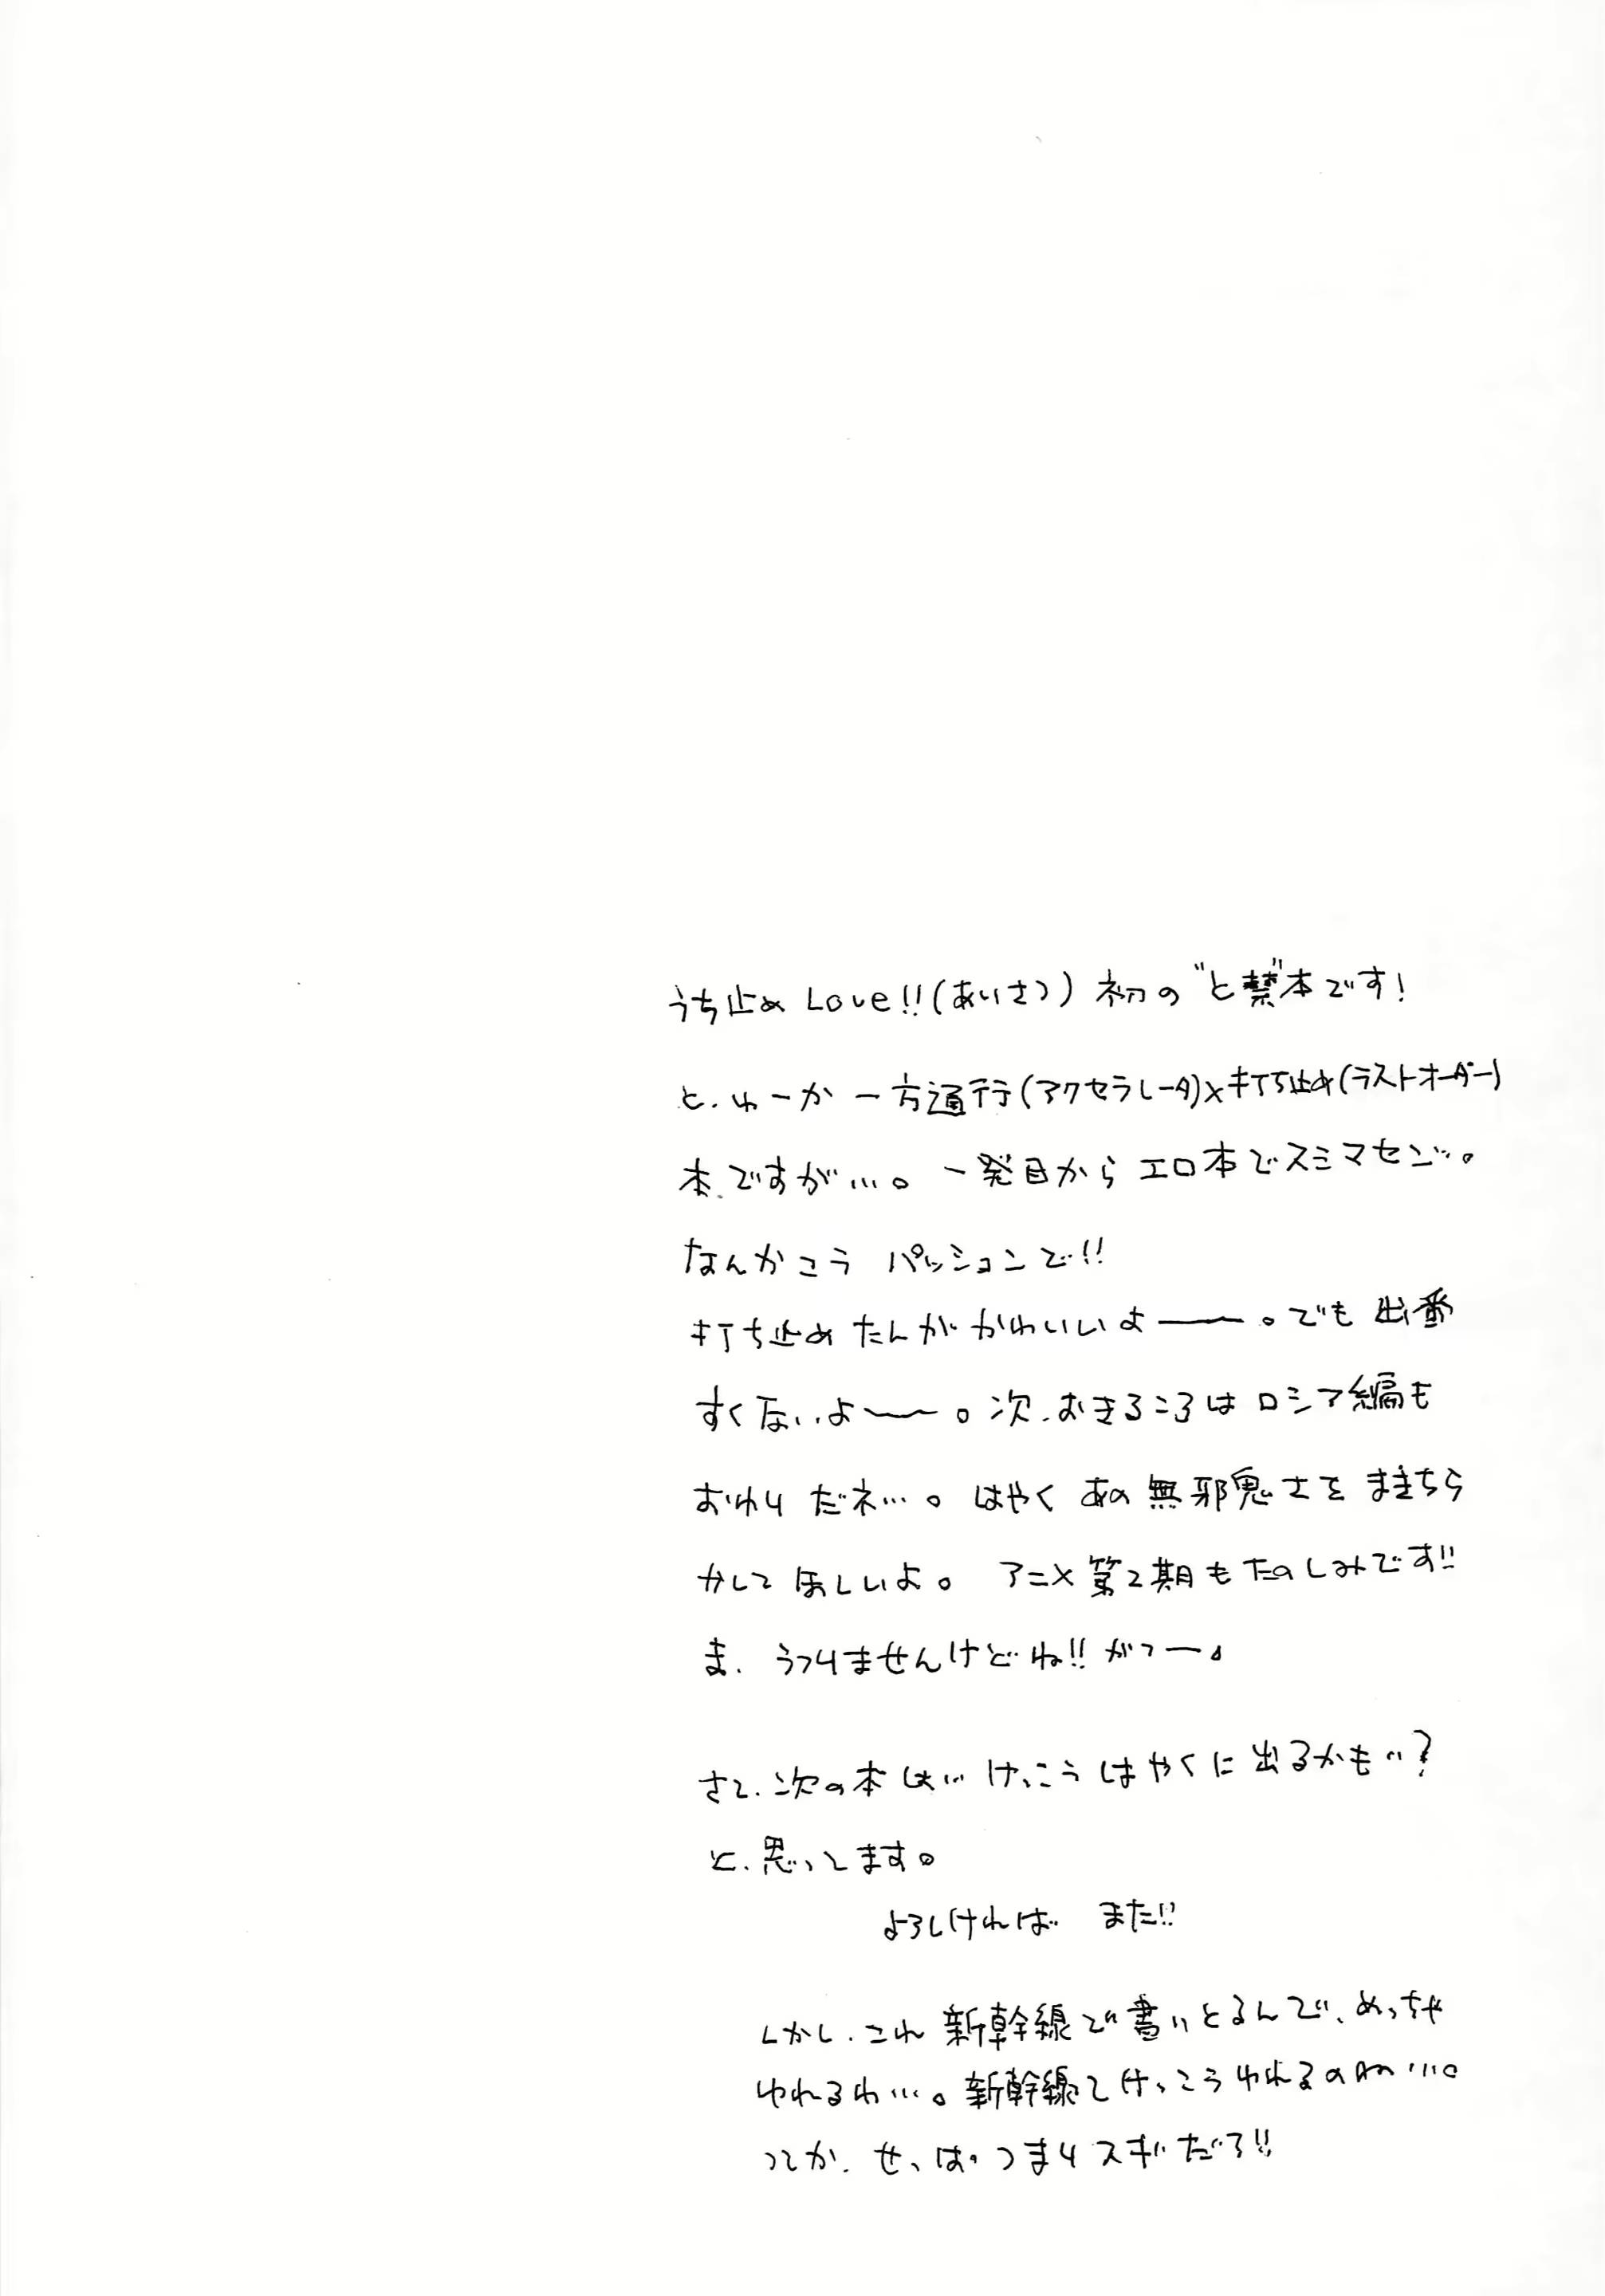 うち止めLove!!(あいさつ) 初の"と禁"本です!
と、ゆーか 一方通行(アクセラレータ)×打ち止め(ラストオーダー)
本ですが…。一発目からエロ本でスミマセン…。
なんかこう パッションで!!
打ち止めたんがかわいいよ――。でも出番
すくないよ〜〜。次、おきるころはロシア編も
おわりだネ…。はやく あの無邪鬼さをまきちら
かしてほしいよ。 アニメ第2期もたのしみです!!
ま、うつりませんけどね!! がつー。
さて、次の本は… けっこうはやくに出るかも…?
と、思ってます。
よろしければ また!!
しかし、これ新幹線で書いとるんで、めっちゃ
ゆれるわ…。新幹線てけっこうゆれるのね…。
つてか、せっぱつまりスギだろ!!